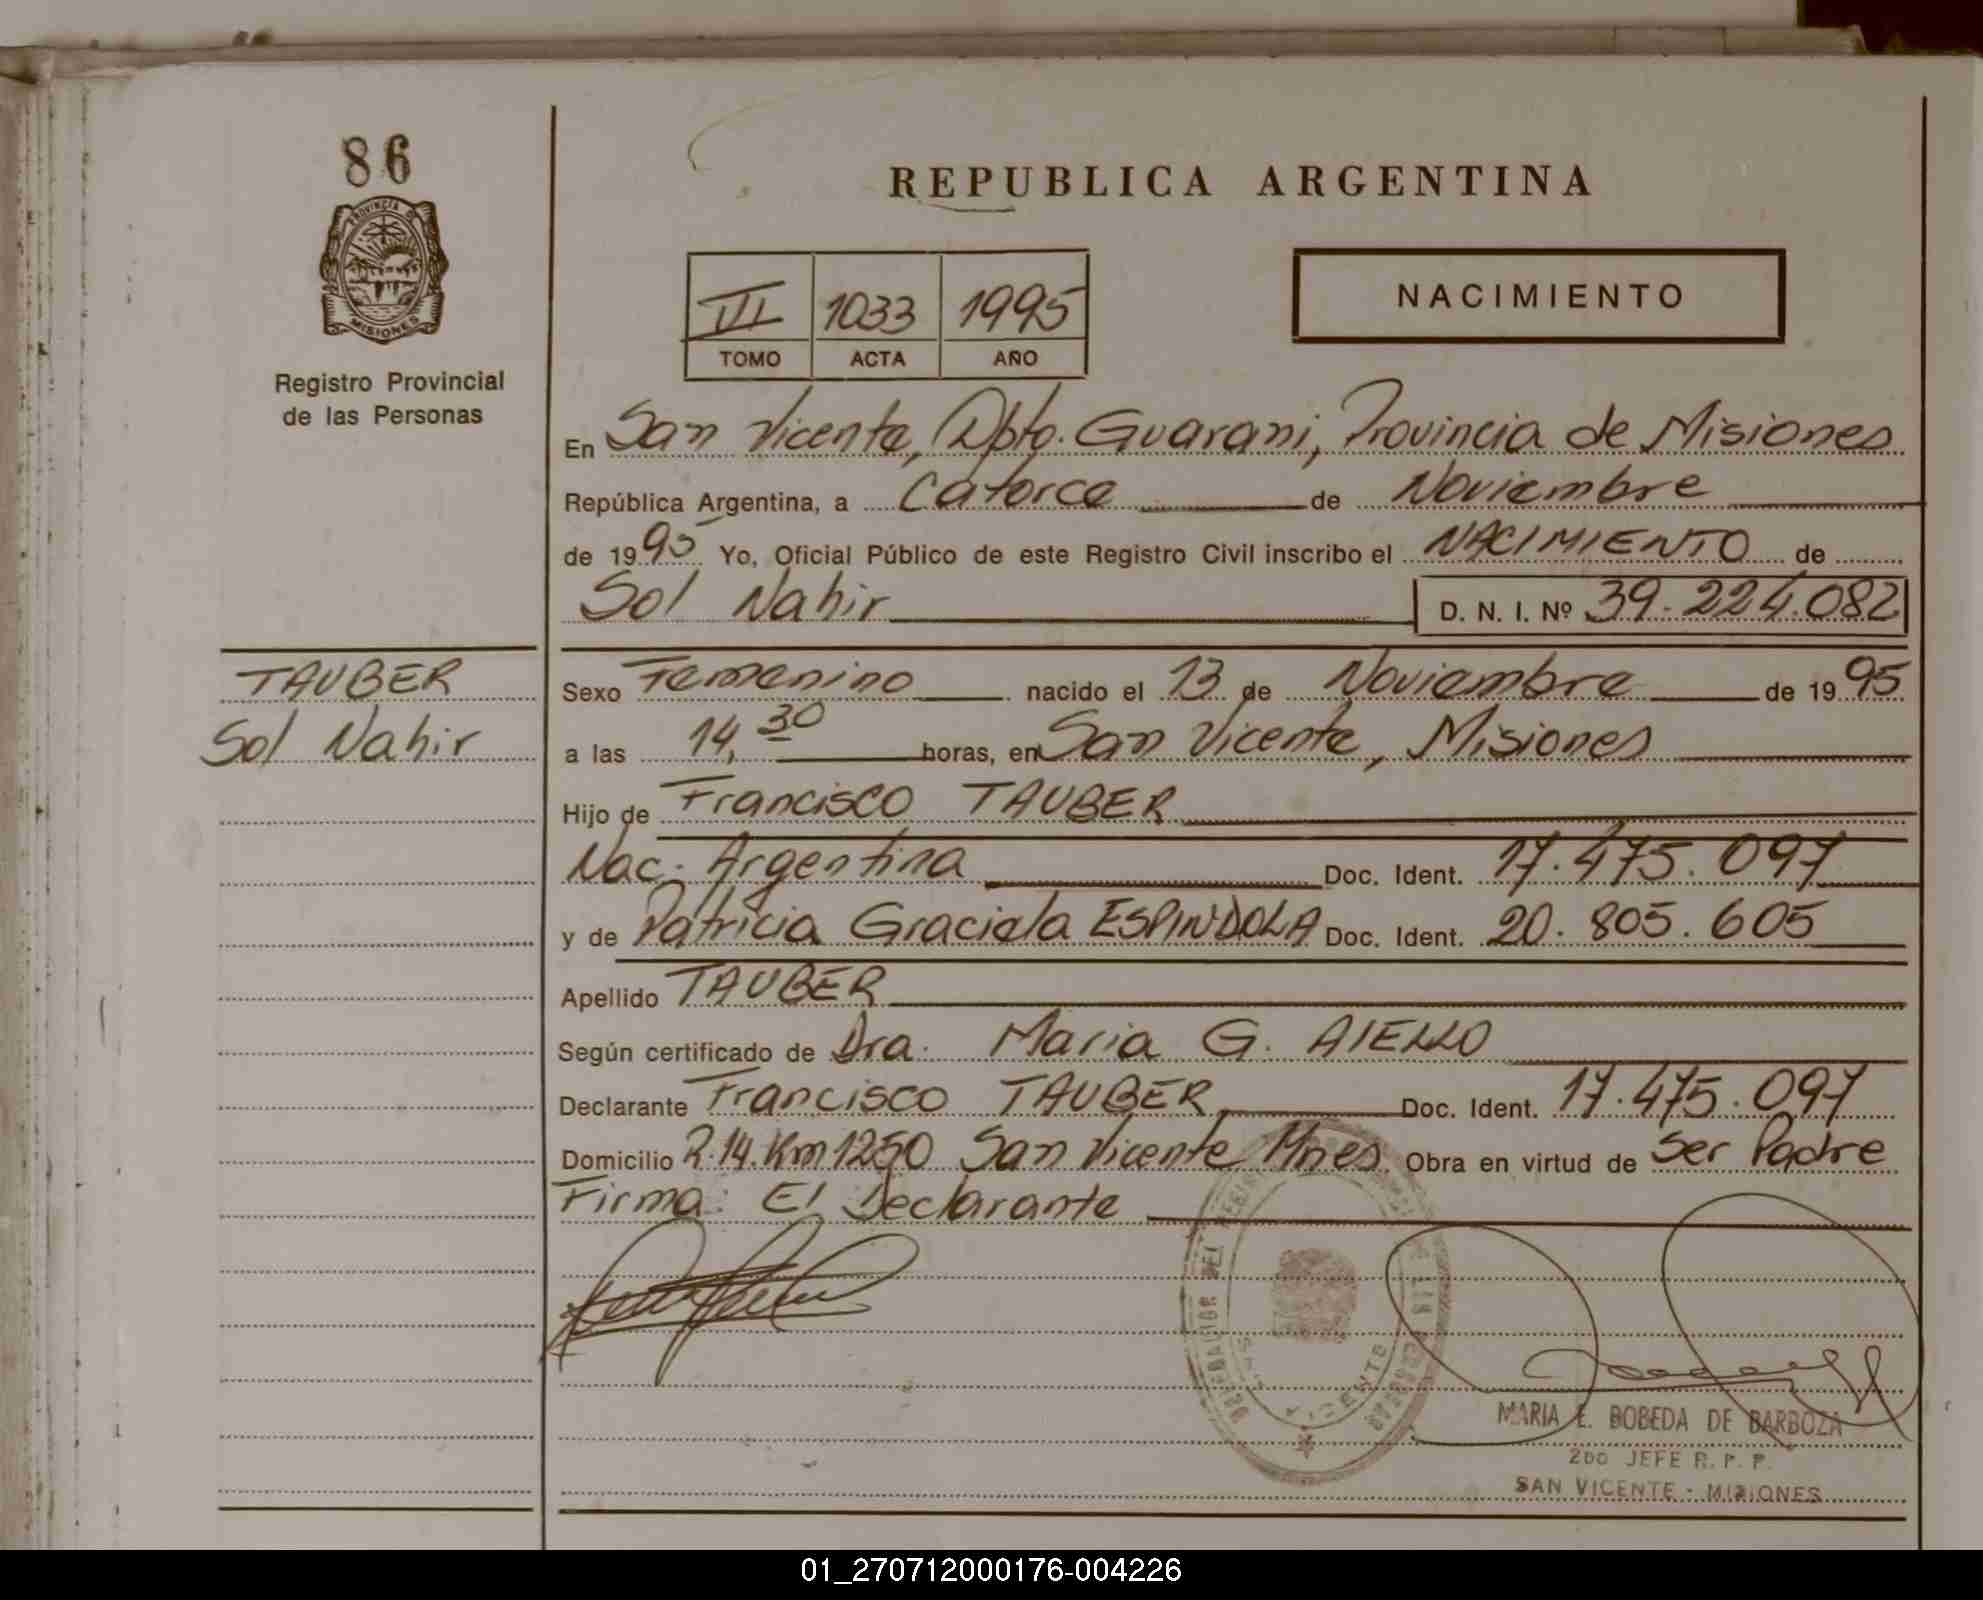 86
PROVINCIA D
MISIONES
Registro Provincial
de las Personas
REPUBLICA ARGENTINA
VI 1033 1995
TOMO ACTA AÑO
NACIMIENTO
En San Vicente, Dpto. Guarani, Provincia de Misiones
República Argentina, a Catorce de Noviembre
de 1995 Yo, Oficial Público de este Registro Civil inscribo el NACIMIENTO de
Sol Nahir D. N. I. Nº 39.224.082
TAUBER
Sol Nahir
Sexo Femenino nacido el 13 de Noviembre de 1995
a las 14,30 horas, en San Vicente, Misiones
Hijo de Francisco TAUBER
Nac. Argentina Doc. Ident. 17.475.097
y de Patricia Graciela ESPINDOLA Doc. Ident. 20.805.605
Apellido TAUBER
Según certificado de Dra. Maria G. AIELLO
Declarante Francisco TAUBER Doc. Ident. 17.475.097
Domicilio R.14.Km1250 San Vicente Mnes. Obra en virtud de Ser Padre
Firma: El Declarante
VICENTE
MARIA E. BOBEDA DE BARBOZA
2DO JEFE R. P. P.
SAN VICENTE - MISIONES
01_270712000176-004226